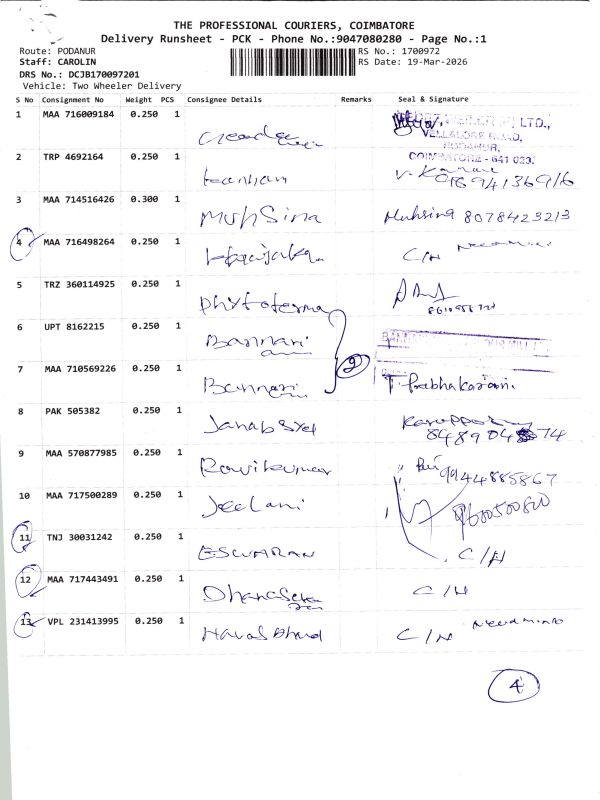 THE PROFESSIONAL COURIERS, COIMBATORE
Delivery Runsheet - PCK - Phone No.:9047080280 - Page No.:1
Route: PODANUR RS No.: 1700972
Staff: CAROLIN RS Date: 19-Mar-2026
DRS No.: DCJB170097201
Vehicle: Two Wheeler Delivery
S No Consignment No Weight PCS Consignee Details Remarks Seal & Signature
1 MAA 716009184 0.250 1 LTD.,
VELLALORE ROAD,
PODANUR,
COIMBATORE - 641 023.
2 TRP 4692164 0.250 1 V. Kannan
3 MAA 714516426 0.300 1 Muhsina Muhsina 8078423213
4 MAA 716498264 0.250 1 C/H
5 TRZ 360114925 0.250 1 Phytoterma
6 UPT 8162215 0.250 1 Bannari
2
7 MAA 710569226 0.250 1 Bannari T Prabhakaran
8 PAK 505382 0.250 1 Janab Syed
9 MAA 570877985 0.250 1 Ravikumar 9944885867
10 MAA 717500289 0.250 1 Jeelani 9600500800
11 TNJ 30031242 0.250 1 ESWARAN C/H
12 MAA 717443491 0.250 1 Dhanaseka C/H
13 VPL 231413995 0.250 1 C/H
4